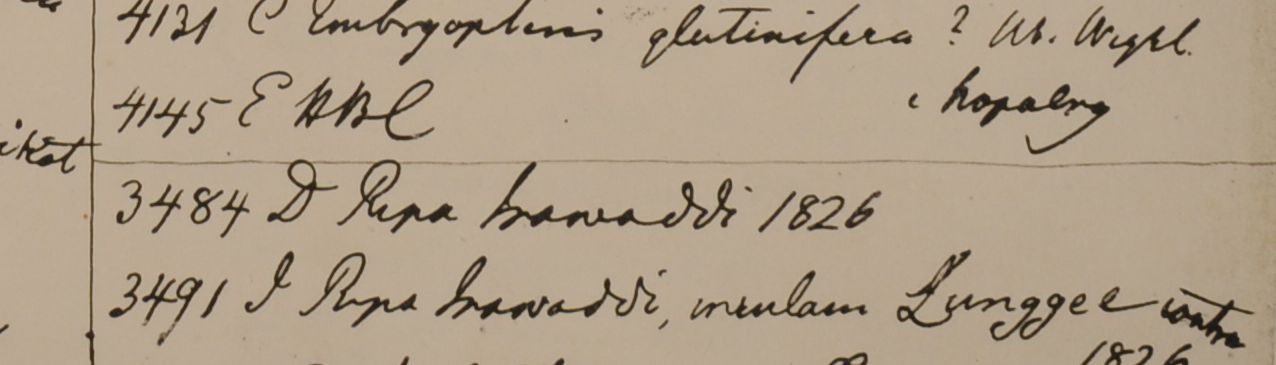 4131 C Embryopteris glutinifera ? Hb. Wight.
4145 E HBC
3484 D Ripa Irawaddi 1826
3491 I Ripa Irawaddi, insulam Lunggee contra
1826